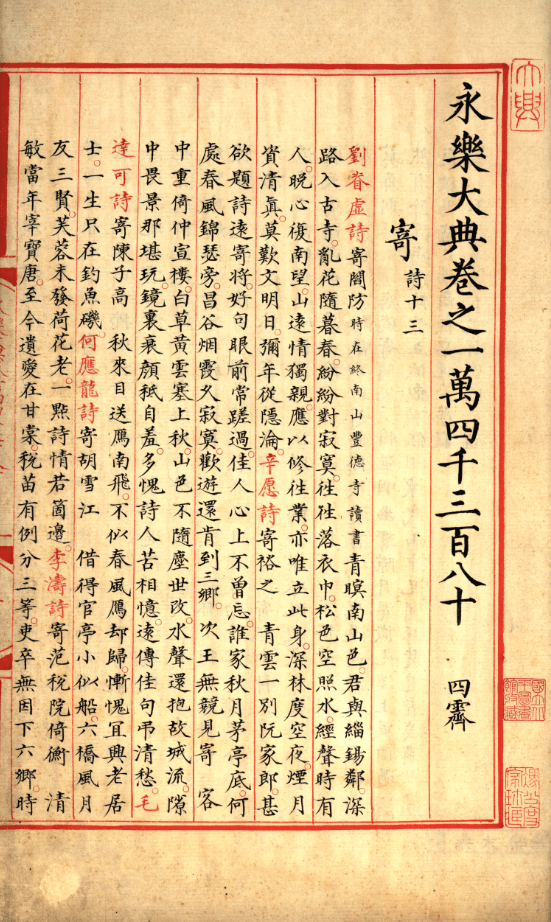 永樂大典卷之一萬四千三百八十 四霽
寄 詩十三
劉眘虛詩寄閻防時在終南山豐德寺讀書青暝南山色君與緇錫鄰深
路入古寺亂花隨暮春紛紛對寂寞徃徃落衣巾松色空照水經聲時有
人晚心復南望山遠情獨親應以修徃業亦唯立此身深林度空夜煙月
資清真莫歎文明日彌年從隱淪辛愿詩寄裕之 青雲一別阮家郎甚
欲題詩遠寄將好句眼前常蹉過佳人心上不曾忘誰家秋月茅亭底何
處春風錦瑟旁昌谷烟霞久寂寞歡遊還肯到三鄉 次王無競見寄 客
中重倚仲宣樓白草黃雲塞上秋山色不隨塵世改水聲還抱故城流隙
中畏景那堪玩鏡裏衰顏秪自羞多愧詩人苦相憶遠傳佳句弔清愁毛
達可詩寄陳子高 秋來目送鴈南飛不似春風鴈却歸慚愧宜興老居
士一生只在釣魚磯何應龍詩寄胡雪江 借得官亭小似船六橋風月
友三賢芙蓉未發荷花老一㸃詩情若箇邊李濤詩寄范稅院倚衝 清
敏當年宰寶唐至今遺愛在甘棠稅苗有例分三等吏卒無因下六鄉時